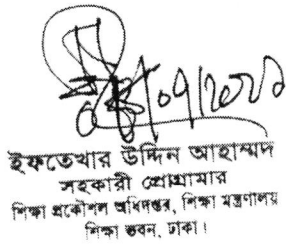 ইফতেখার উদ্দিন আহাম্মদ
সহকারী প্রোগ্রামার
শিক্ষা প্রকৌশল অধিদপ্তর, শিক্ষা মন্ত্রণালয়
শিক্ষা ভবন, ঢাকা।